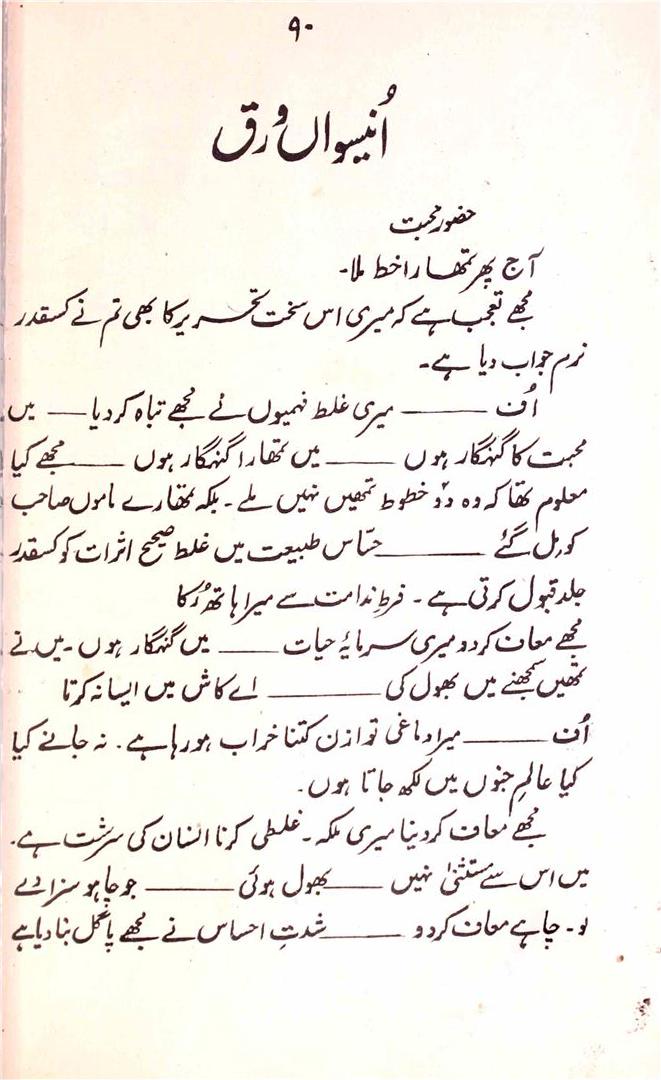 ۹۰
اُنیسواں ورق
حضور محبت
آج پھر تمھارا خط ملا۔
مجھے تعجب ہے کہ میری اس سخت تحریر کا بھی تم نے کسقدر
نرم جواب دیا ہے۔
اُف ——— میری غلط فہمیوں نے مجھے تباہ کردیا —— میں
محبت کا گنہگار ہوں ——— میں تمھارا گنہگار ہوں ——— مجھے کیا
معلوم تھا کہ وہ دو خطوط تمھیں نہیں ملے۔ بلکہ تمھارے ماموں صاحب
کو مل گئے ——— حسّاس طبیعت میں غلط صحیح اثرات کو کسقدر
جلد قبول کرتی ہے۔ فرطِ ندامت سے میرا ہاتھ رُکا
مجھے معاف کردو میری سرمایۂ حیات ——— میں گنہگار ہوں۔ میں نے
تمھیں سمجھنے میں بھول کی ——— اے کاش میں ایسا نہ کرتا
اُف ——— میرا دماغی توازن کتنا خراب ہو رہا ہے۔ نہ جانے کیا
کیا عالمِ جنوں میں لکھ جاتا ہوں۔
مجھے معاف کر دینا میری ملکہ۔ غلطی کرنا انسان کی سرشت ہے۔
میں اس سے مستثنیٰ نہیں ——— بھول ہوئی ——— جو چاہو سزا دے
لو۔ چاہے معاف کردو ——— شدتِ احساس نے مجھے پاگل بنا دیا ہے